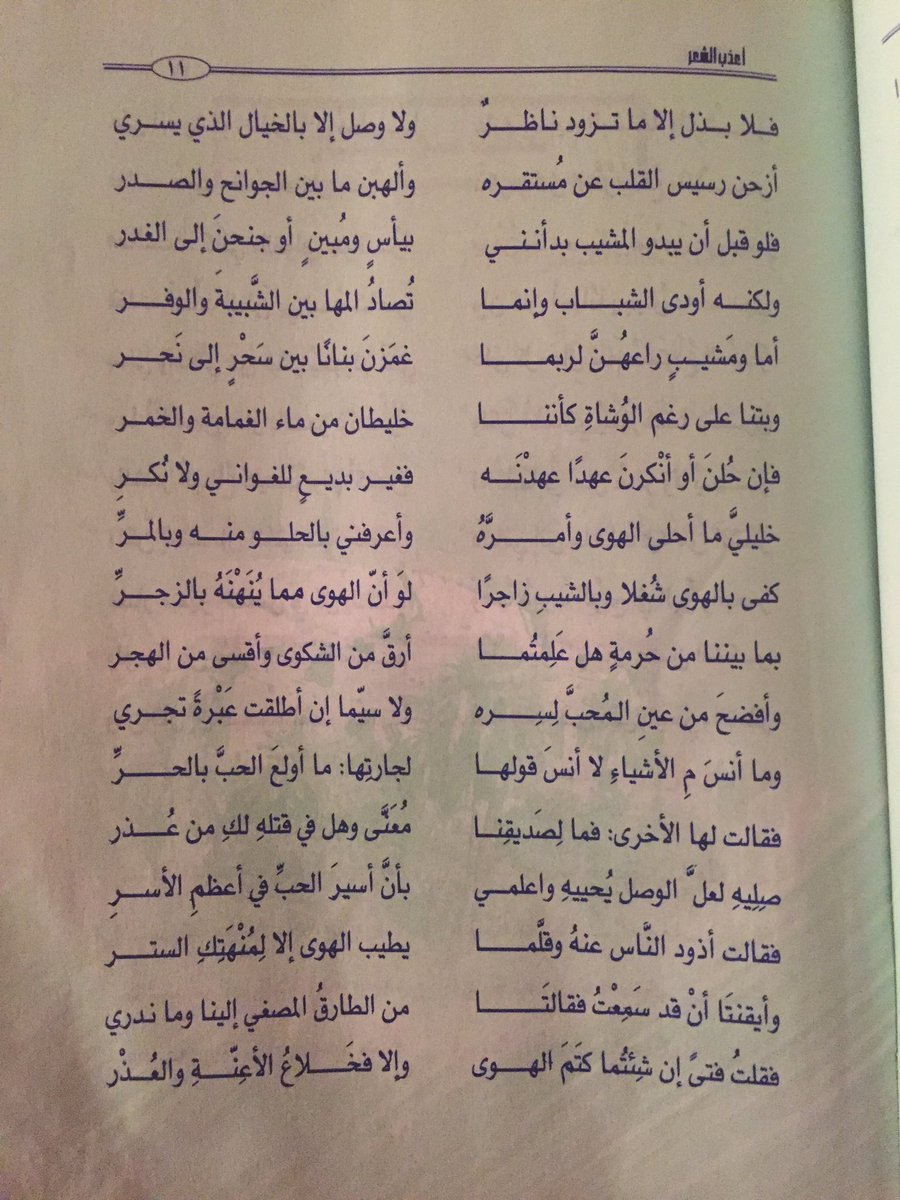 أعذب الشعر
١١
فلا بذل إلا ما تزود ناظرٌ ولا وصل إلا بالخيال الذي يسري
أزحن رسيس القلب عن مُستقره وألهبن ما بين الجوانح والصدر
فلو قبل أن يبدو المشيب بدأنني بيأسٍ ومُبينٍ أو جنحنَ إلى الغدر
ولكنه أودى الشباب وإنما تُصادُ المها بين الشَّبيبةَ والوفر
أما ومَشيبٍ راعهُنَّ لربما غمَزنَ بنانًا بين سَحْرٍ إلى نَحر
وبتنا على رغم الوُشاةِ كأننا خليطان من ماء الغمامة والخمر
فإن حُلنَ أو أنْكرنَ عهدًا عهدْنَه فغير بديعٍ للغواني ولا نُكرِ
خليليَّ ما أحلى الهوى وأمرَّهُ وأعرفني بالحلو منه وبالمرِّ
كفى بالهوى شُغلا وبالشيبِ زاجرًا لوَ أنّ الهوى مما يُنَهْنَهُ بالزجرِّ
بما بيننا من حُرمةٍ هل عَلِمتُما أرقَّ من الشكوى وأقسى من الهجر
وأفضحَ من عينِ المُحبَّ لِسِره ولا سيّما إن أطلقت عَبْرةً تجري
وما أنسَ مِ الأشياءِ لا أنسَ قولها لجارتِها: ما أولعَ الحبَّ بالحرِّ
فقالت لها الأخرى: فما لِصَديقِنا مُعَنَّى وهل في قتلهِ لكِ من عُذر
صِلِيهِ لعلَّ الوصل يُحييهِ واعلمي بأنَّ أسيرَ الحبِّ في أعظمِ الأسرِ
فقالت أذود النَّاس عنهُ وقلَّما يطيب الهوى إلا لِمُنْهَتِكِ الستر
وأيقنتَا أنْ قد سَمِعْتُ فقالتَا من الطارقُ المصغي إلينا وما ندري
فقلتُ فتىً إن شِئتُما كتَمَ الهوى وإلا فخَلاعُ الأعِنّةِ والعُذْر